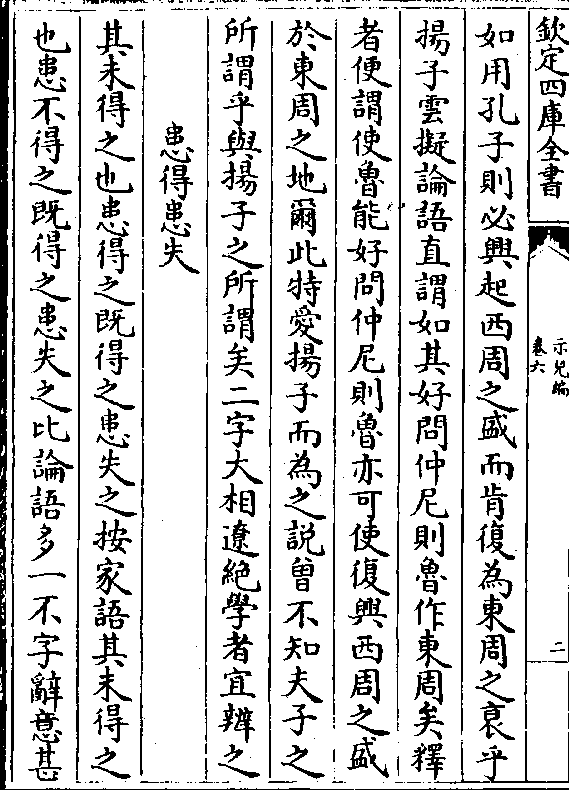 欽定四庫全書
示兒編
卷六
二
如用孔子則必興起西周之盛而肯復為東周之衰乎
揚子雲擬論語直謂如其好問仲尼則魯作東周矣釋
者便謂使魯能好問仲尼則魯亦可使復興西周之盛
於東周之地爾此特愛揚子而為之説曾不知夫子之
所謂乎與揚子之所謂矣二字大相遼絶學者宜辨之
患得患失
其未得之也患得之既得之患失之按家語其未得之
也患不得之既得之患失之比論語多一不字辭意甚